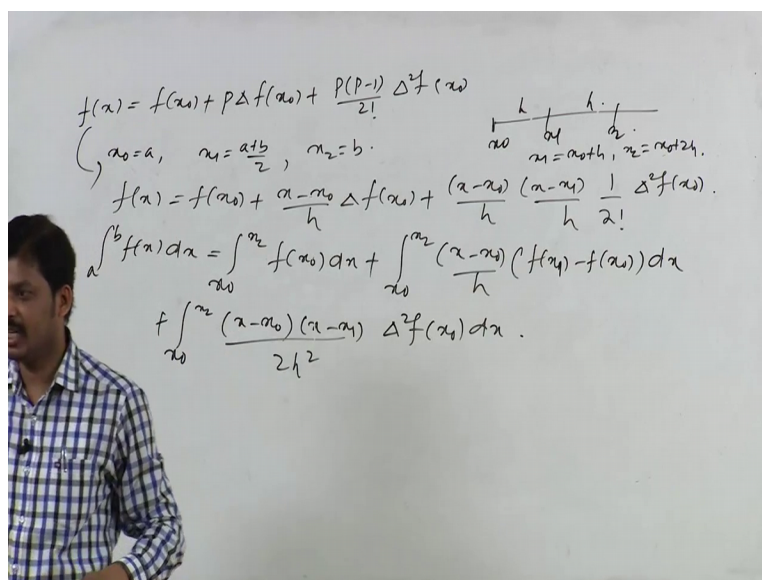 f(x) = f(x0) + pΔf(x0) + p(p-1)/2! Δ²f(x0)
h h.
x0 x1 x2.
x0 = a, x1 = a+b/2, x2 = b.
x1 = x0+h, x2 = x0+2h.
f(x) = f(x0) + x-x0/h Δf(x0) + (x-x0)/h (x-x1)/h 1/2! Δ²f(x0).
a∫b f(x) dx = ∫x0^x2 f(x0) dx + ∫x0^x2 (x-x0)/h (f(x1) - f(x0)) dx
+ ∫x0^x2 (x-x0)(x-x1)/2h² Δ²f(x0) dx.